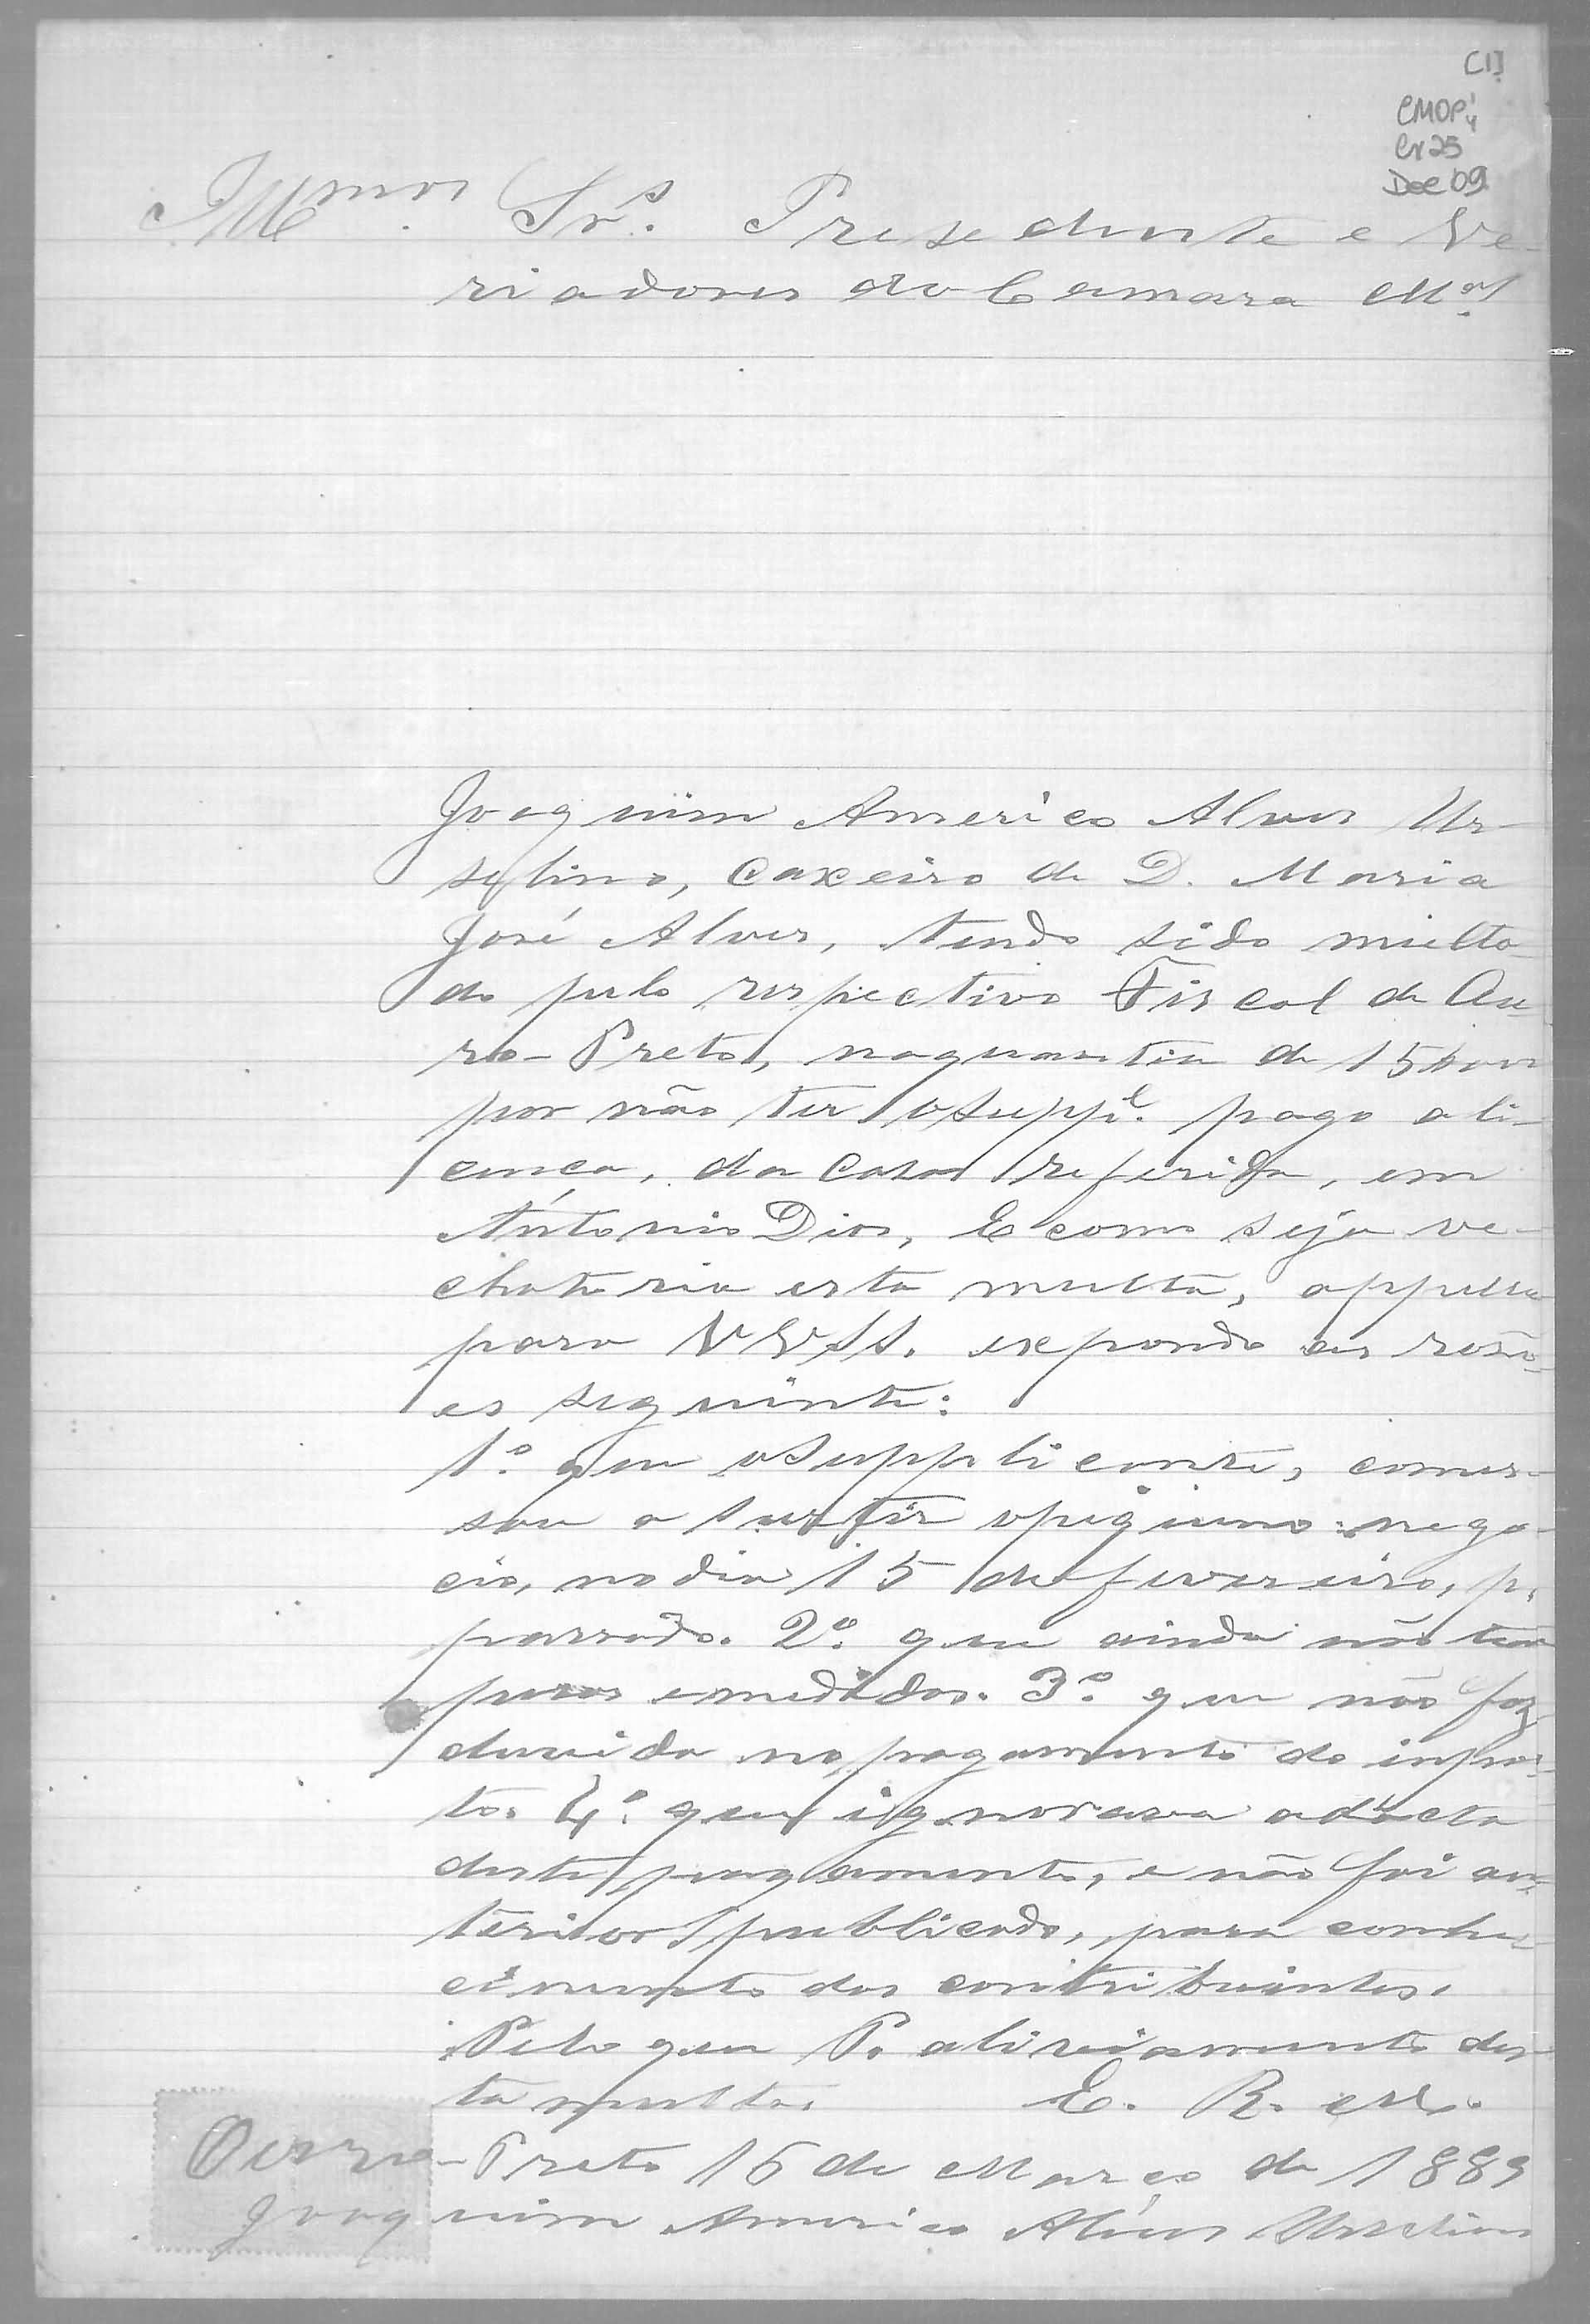 [1]
CMOP
Cx 25
Doc 09
Illmos. Srs. Presedente e Ve-
riadores da Camara Mal
Joaquim Americo Alves Ur-
selino, caxeiro de D. Maria
José Alves, tendo sido multa-
do pelo respectivo Fiscal de Ou-
ro-Preto, naquantia de 15$000
por não ter osuppe. pago a li-
cença, da casa referida, em
Antonio Dias, E como seja ve-
chatoria esta multa, appella
para VVSS. expondo as rasõ-
es seguinte:
1º. que osupplicante, comes-
sou a surtir opequeno nego-
cio, no dia 15 de fevereiro, p.
passado. 2º. que ainda não tem
pesos emedidas. 3º. que não faz
duvida no pagamento do inpos-
to. 4º. que ignorava adacta
deste pagamento, e não foi an-
terior publicado, para conhe-
cimento dos contribuintes.
Pelo que P. aliviamento des-
ta multa. E. R. M.
Ouro-Preto 16 de Março de 1889
Joaquim Americo Alves Urselino